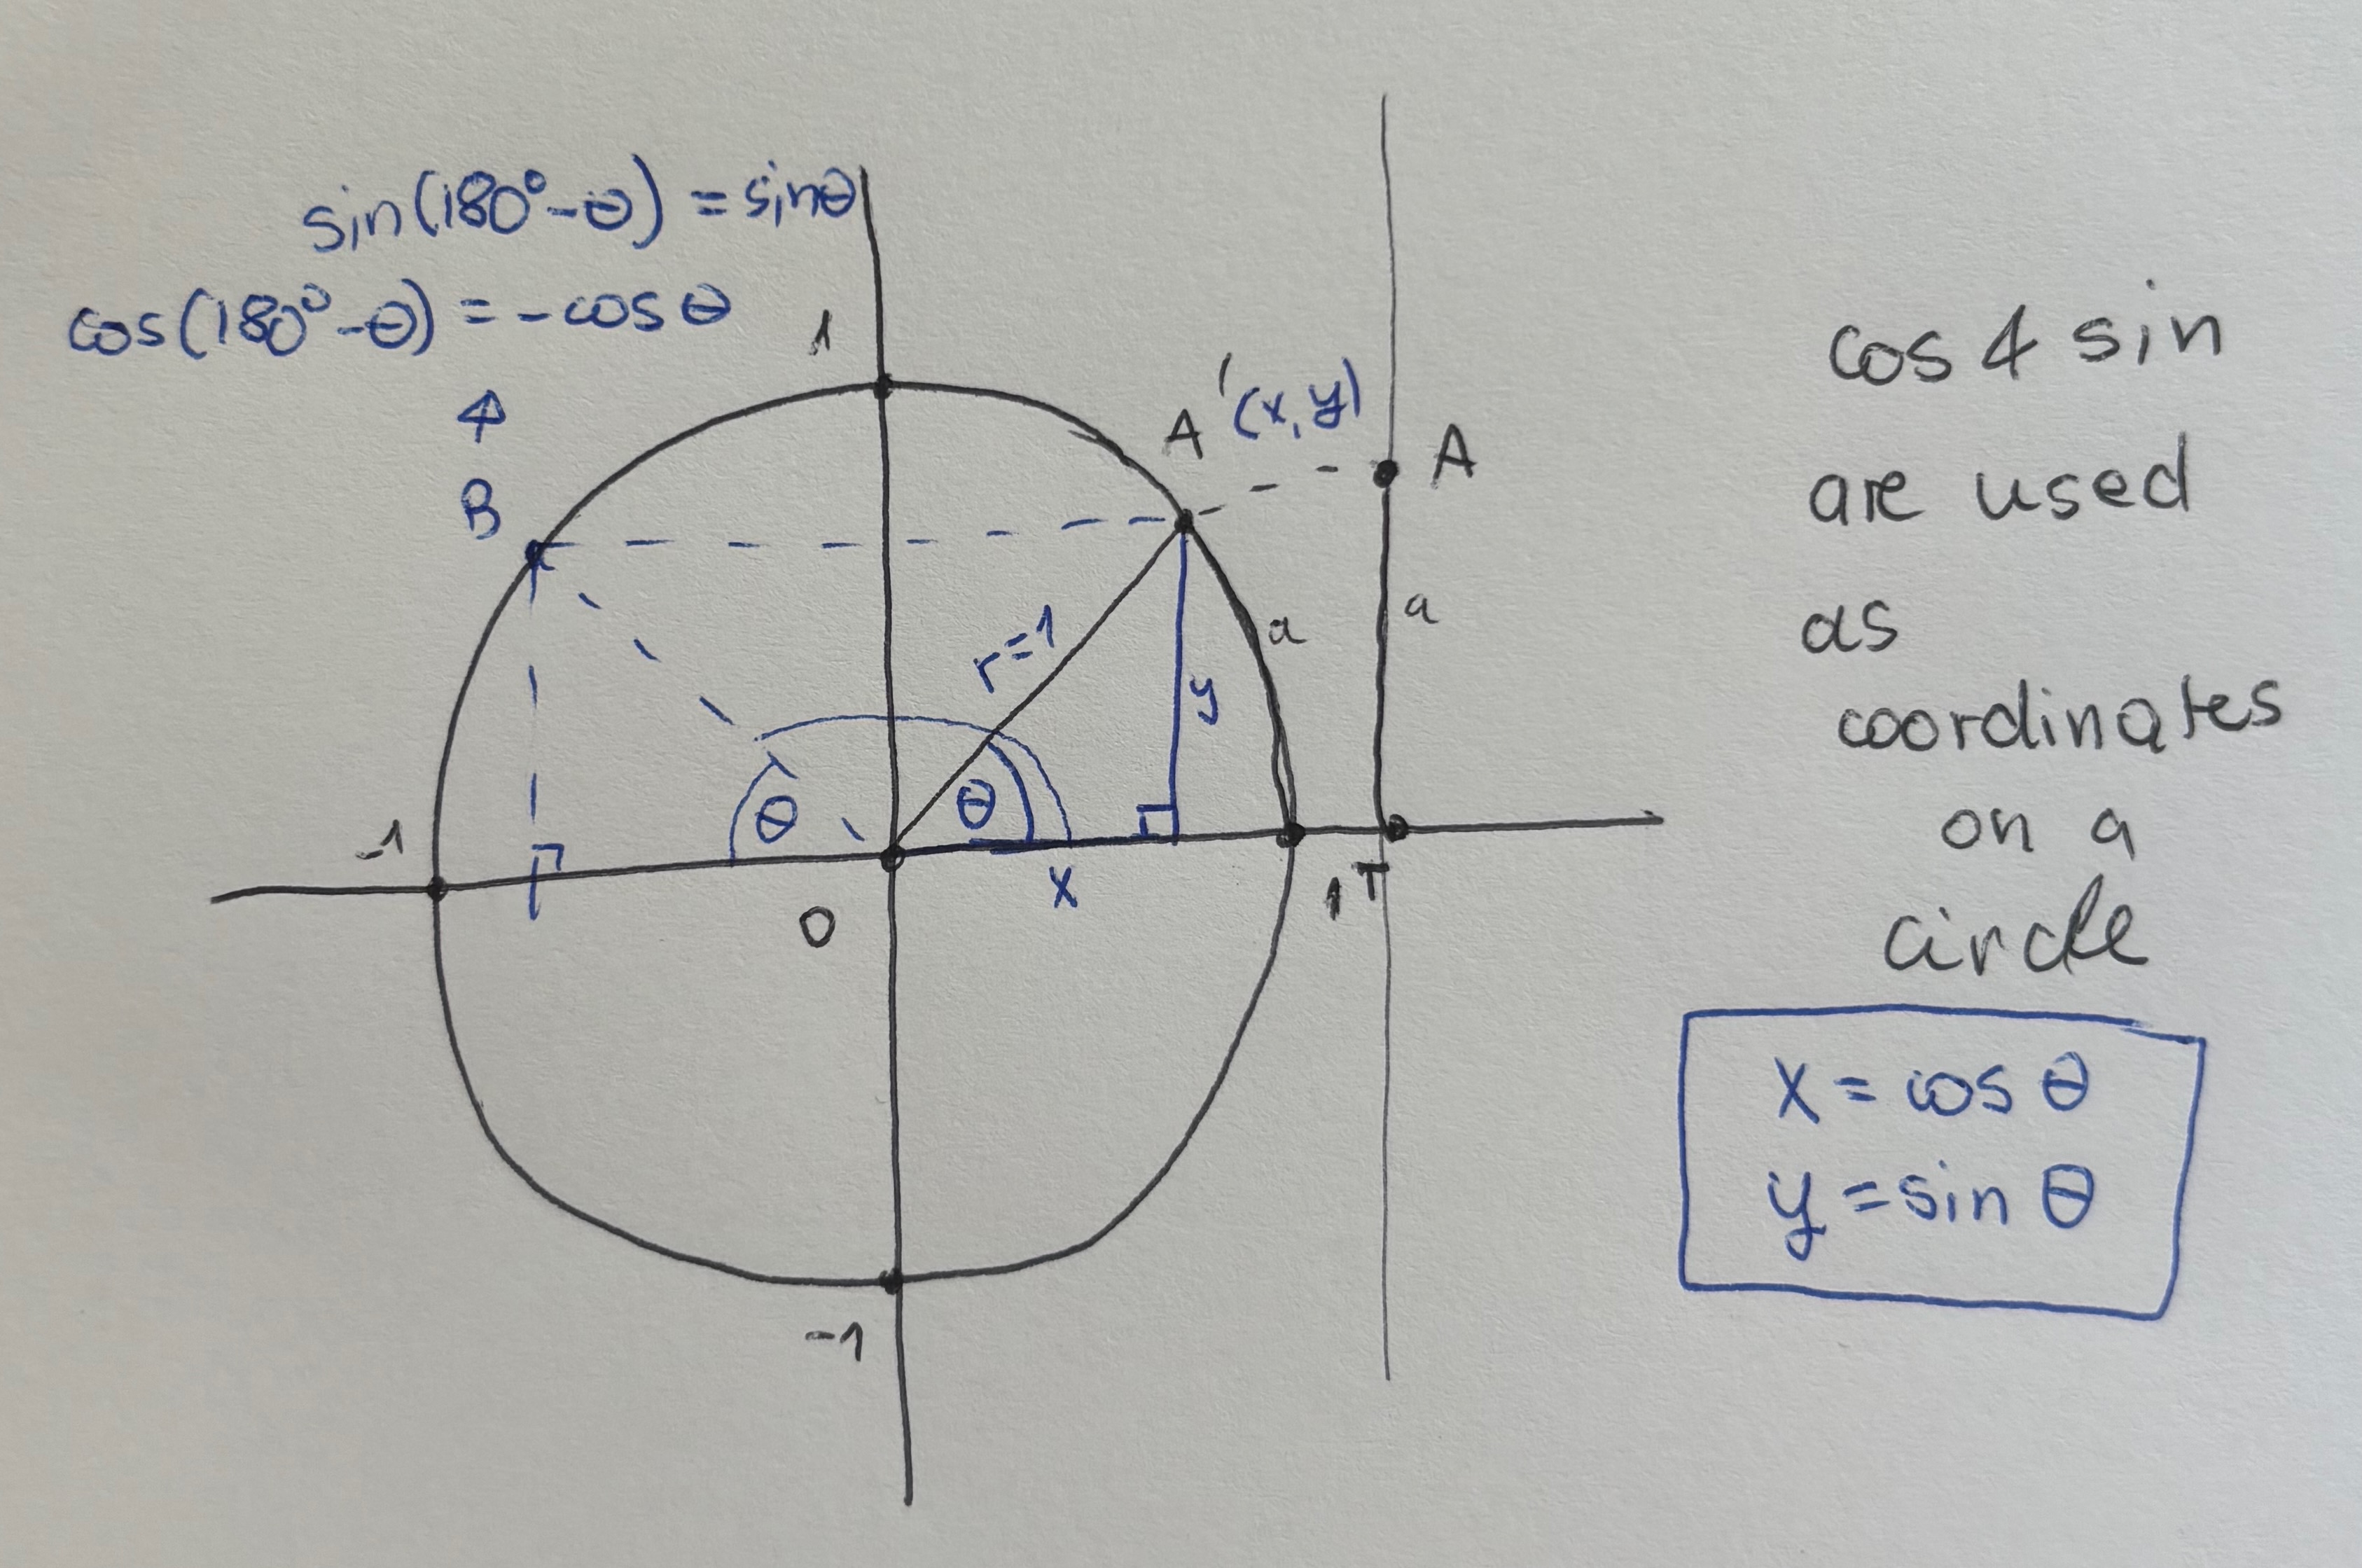 sin(180°-θ) = sinθ
cos(180°-θ) = -cosθ
1
A'(x,y)
A
B
r=1
a
a
y
θ
θ
-1
x
1
T
O
-1
cos & sin
are used
as
coordinates
on a
circle
x = cos θ
y = sin θ